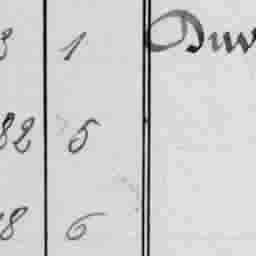 3 1 Duv
82 5
8 6